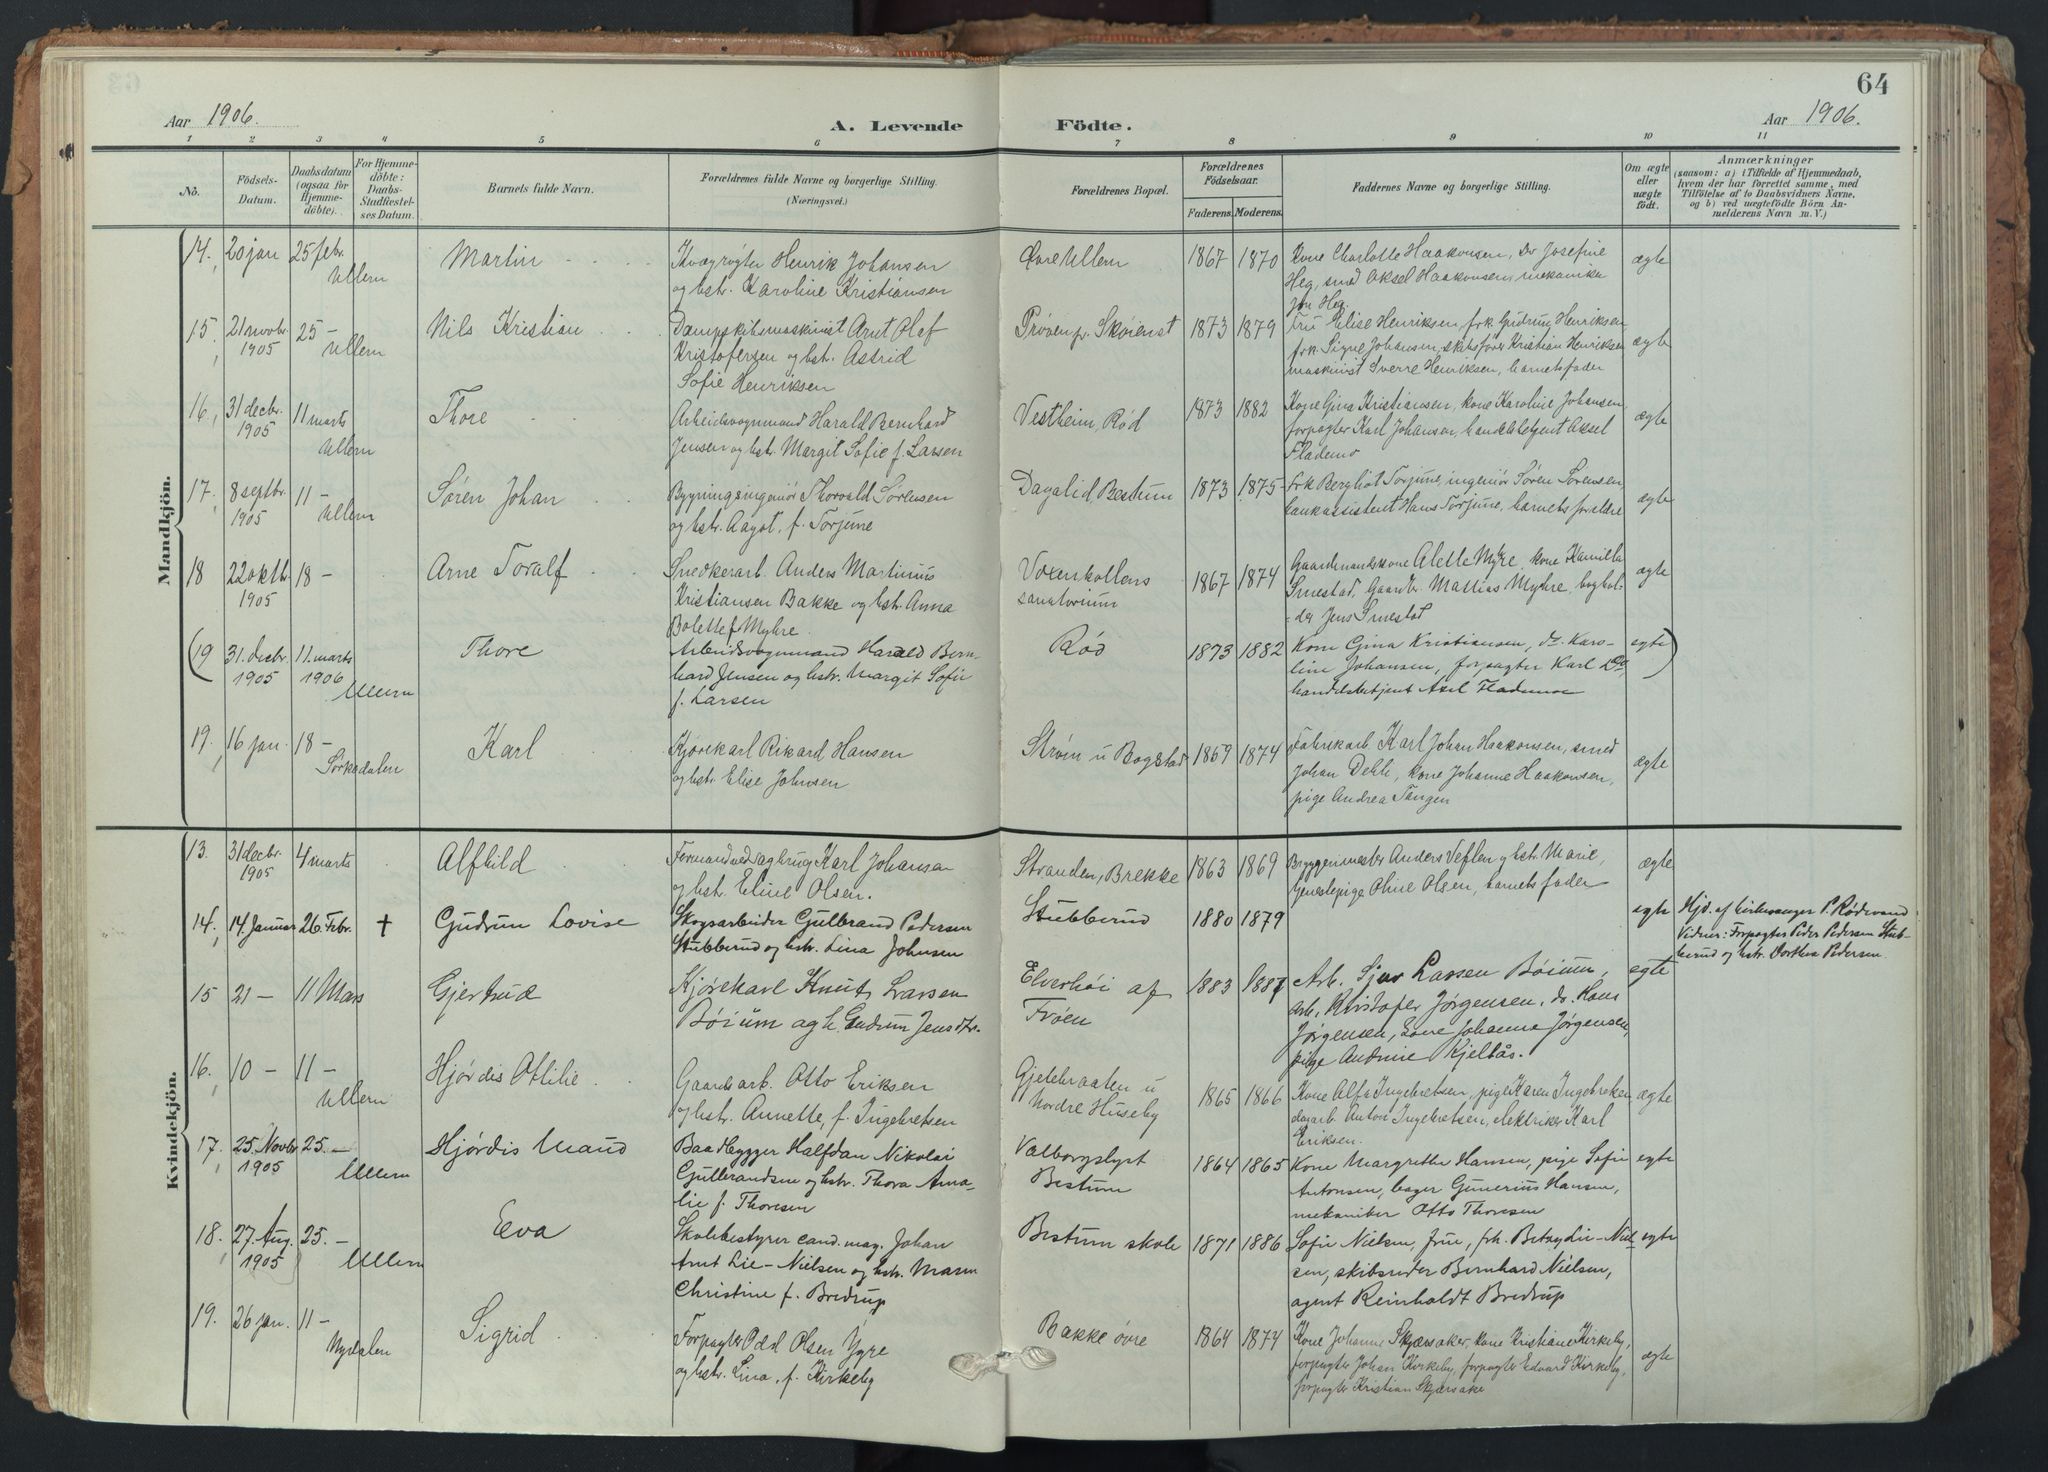 64
Aar 1906.
A. Levende Födte.
Aar 1906.
1 2 3 4 5 6 7 8 9 10 11
No.
Födsels-Datum.
Daabsdatum (ogsaa for Hjemme-döbte).
For Hjemme-döbte: Daabs-Stadfæstel-ses Datum.
Barnets fulde Navn.
Forældrenes fulde Navne og borgerlige Stilling.
(Næringsvei.)
Forældrenes Bopæl.
Forældrenes Födselsaar.
Faderens. Moderens.
Faddernes Navne og borgerlige Stilling.
Om ægte eller uægte födt.
Anmærkninger
(saasom: a) i Tilfælde af Hjemmedaab,
hvem der har forrettet samme, med
Tilföielse af to Daabsvidners Navne,
og b) ved uægtefödte Börn An-
melderens Navn m. V.)
Mandkjön.
14, 20 jan 25 febr. Ullern Martin
Kvægrøgter Henrik Johansen
og hstr. Karoline Kristiansen
Øvre Ullern 1867 1870
Kone Charlotte Haakonsen, Do Josefine
Heg, smed Aksel Haakonsen, mekaniker
Jon Heg.
ægte
15, 21 novbr. 1905 25 – Ullern Nils Kristian
Dampskibsmaskinist Arnt Olaf
Kristofersen og hstr. Astrid
Sofie Henriksen
Prøven pr. Skøienst 1873 1879
Fru Elise Henriksen, frk. Gudrun Henriksen
frk. Signe Johansen, skibsfører Kristian Henriksen
maskinist Sverre Henriksen, barnets fader
ægte
16, 31 decbr. 1905 11 marts Ullern Thore
Arbeidsvognmand Harald Bernhard
Jensen og hstr. Margit Sofie f. Larsen
Vestheim, Rød 1873 1882
Kone Gina Kristiansen, kone Karoline Johansen
forpagter Karl Johansen, handelsbetjent Aksel
Flademo
ægte
17, 8 septbr. 1905 11 – Ullern Søren Johan
Bygningsingeniør Thorvald Sørensen
og hstr. Aagot, f. Torjune
Dagalid, Bestum 1873 1875
Frk Bergliot Torjune, ingeniør Søren Sørensen,
bankassistent Hans Torjune, barnets forældre
ægte
18 22 oktb. 1905 18 – Arne Toralf
Snedkerarb. Anders Martinius
Kristiansen Bakke og hstr. Anna
Bolette f Myhre
Voxenkollens
sanatorium 1867 1874
Gaardmandskone Alette Myhre, kone Kamilla
Smestad, Gaardbr. Mathias Myhre, boghol-
der Jens Smestad
ægte
(19 31. decbr. 1905 11. marts 1906 Ullern Thore
Arbeidsvognmand Harald Bern-
hard Jensen og hstr. Margit Sofie
f. Larsen
Rød 1873 1882
Kone Gina Kristiansen, do. Karo-
line Johansen, forpagter Karl Do,
handelsbetjent Axel Flademoe
egte)
19, 16 jan. 18 – Sørkedalen Karl
Kjørekarl Rikard Hansen
og hstr. Elise Johnsen
Strøm u Bogstad 1869 1874
Fabrikarb. Karl Johan Haakonsen, smed
Johan Dehli, kone Johanne Haakonsen,
pige Andrea Tangen
ægte
Kvindekjön.
13. 31 decbr. 1905 4 marts Alfhild
Formand ved sagbrug Karl Johansen
og hstr. Eline Olsen.
Stranden, Brekke 1863 1869
Bryggerimester Anders Veflen og hstr. Marie,
pige Oline Olsen, barnets fader
ægte
14, 14 Januar 26. Febr. † Gudrun Lovise
Skogsarbeider Gulbrand Pedersen
Stubberud og hstr. Lina Johnsen
Stubberud 1880 1879
egte
Hjd. af kirkesanger P. Rødsrud
Vidner: Forpagter Peder Pedersen Stub-
berud og hstr. Dorthea Pedersen.
15 21 – 11 Mars Gjertrud
Kjørekarl Knut Larsen
Bøium og h. Gudrun Jensdtr.
Elverhøi af
Frøen 1883 1887
Arb. Sjur Larsen Bøium,
arb. Kristofer Jørgensen, do. Hans
Jørgensen, kone Johanne Jørgensen,
pige Andrine Kjeltås.
egte
16, 10 – 11 – Ullern Hjørdis Ottilie
Gaardsarb. Otto Eriksen
og hstr. Annette, f. Ingebretsen
Gjetebraaten u
Nordre Huseby 1865 1866
Kone Alfa Ingebretsen, pige Karen Ingebretsen
dagarb. Anton Ingebretsen, elektriker Karl
Eriksen.
ægte
17, 25. Novbr. 1905 25. – Ullern Hjørdis Maud
Baadbygger Halfdan Nikolai
Gulbrandsen og hstr. Thora Ama-
lie f. Thoresen
Valborgslyst
Bestum 1864 1865
Kone Margrethe Hansen, pige Sofie
Antonsen, bager Gunerius Hansen,
mekaniker Otto Thoresen
egte
18. 27. Aug. 1905 25. – Ullern Eva
Skolebestyrer cand. mag. Johan
Arnt Lie-Nielsen og hstr. Maren
Christine f. Bredrup
Bestum skole 1871 1886
Sofie Nielsen, frue, frk. Betzy Lie-Niel-
sen, skibsreder Bernhard Nielsen,
agent Reinholdt Bredrup
egte
19. 26 jan. 11 – Nydalen Sigrid
Forpagter Odd Olsen Ygre
og hstr. Lina, f. Kirkeby
Bakke øvre 1864 1874
Kone Johanne Skjærsaker, kone Kristiane Kirkeby,
forpagter Johan Kirkeby, forpagter Edvard Kirkeby,
forpagter Kristian Skjærsaker
ægte